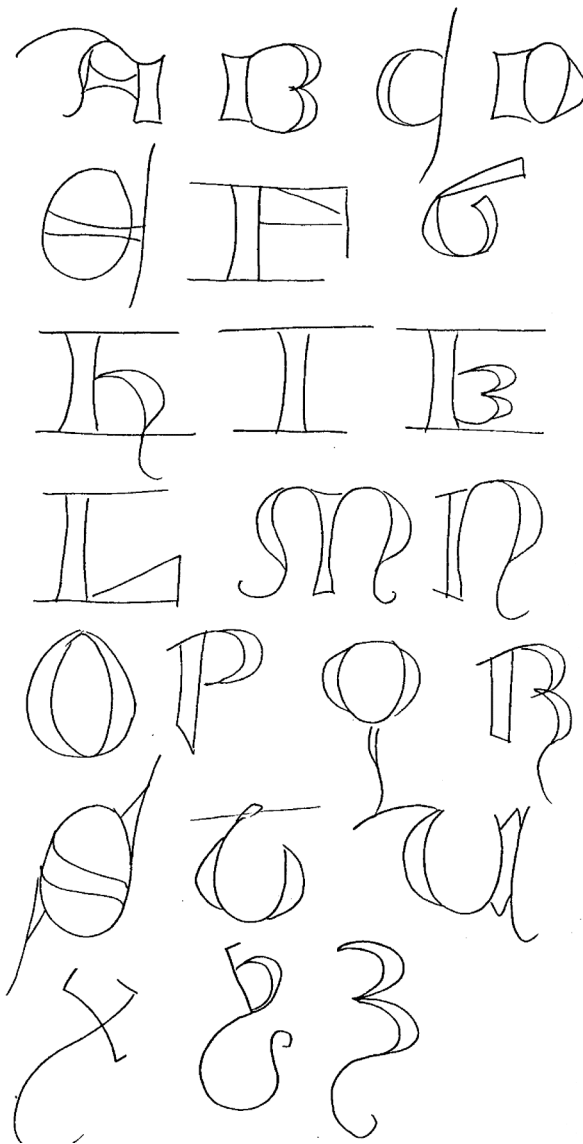 A B C D
E F G
h I K
L M N
O P Q R
S T U
X Y Z